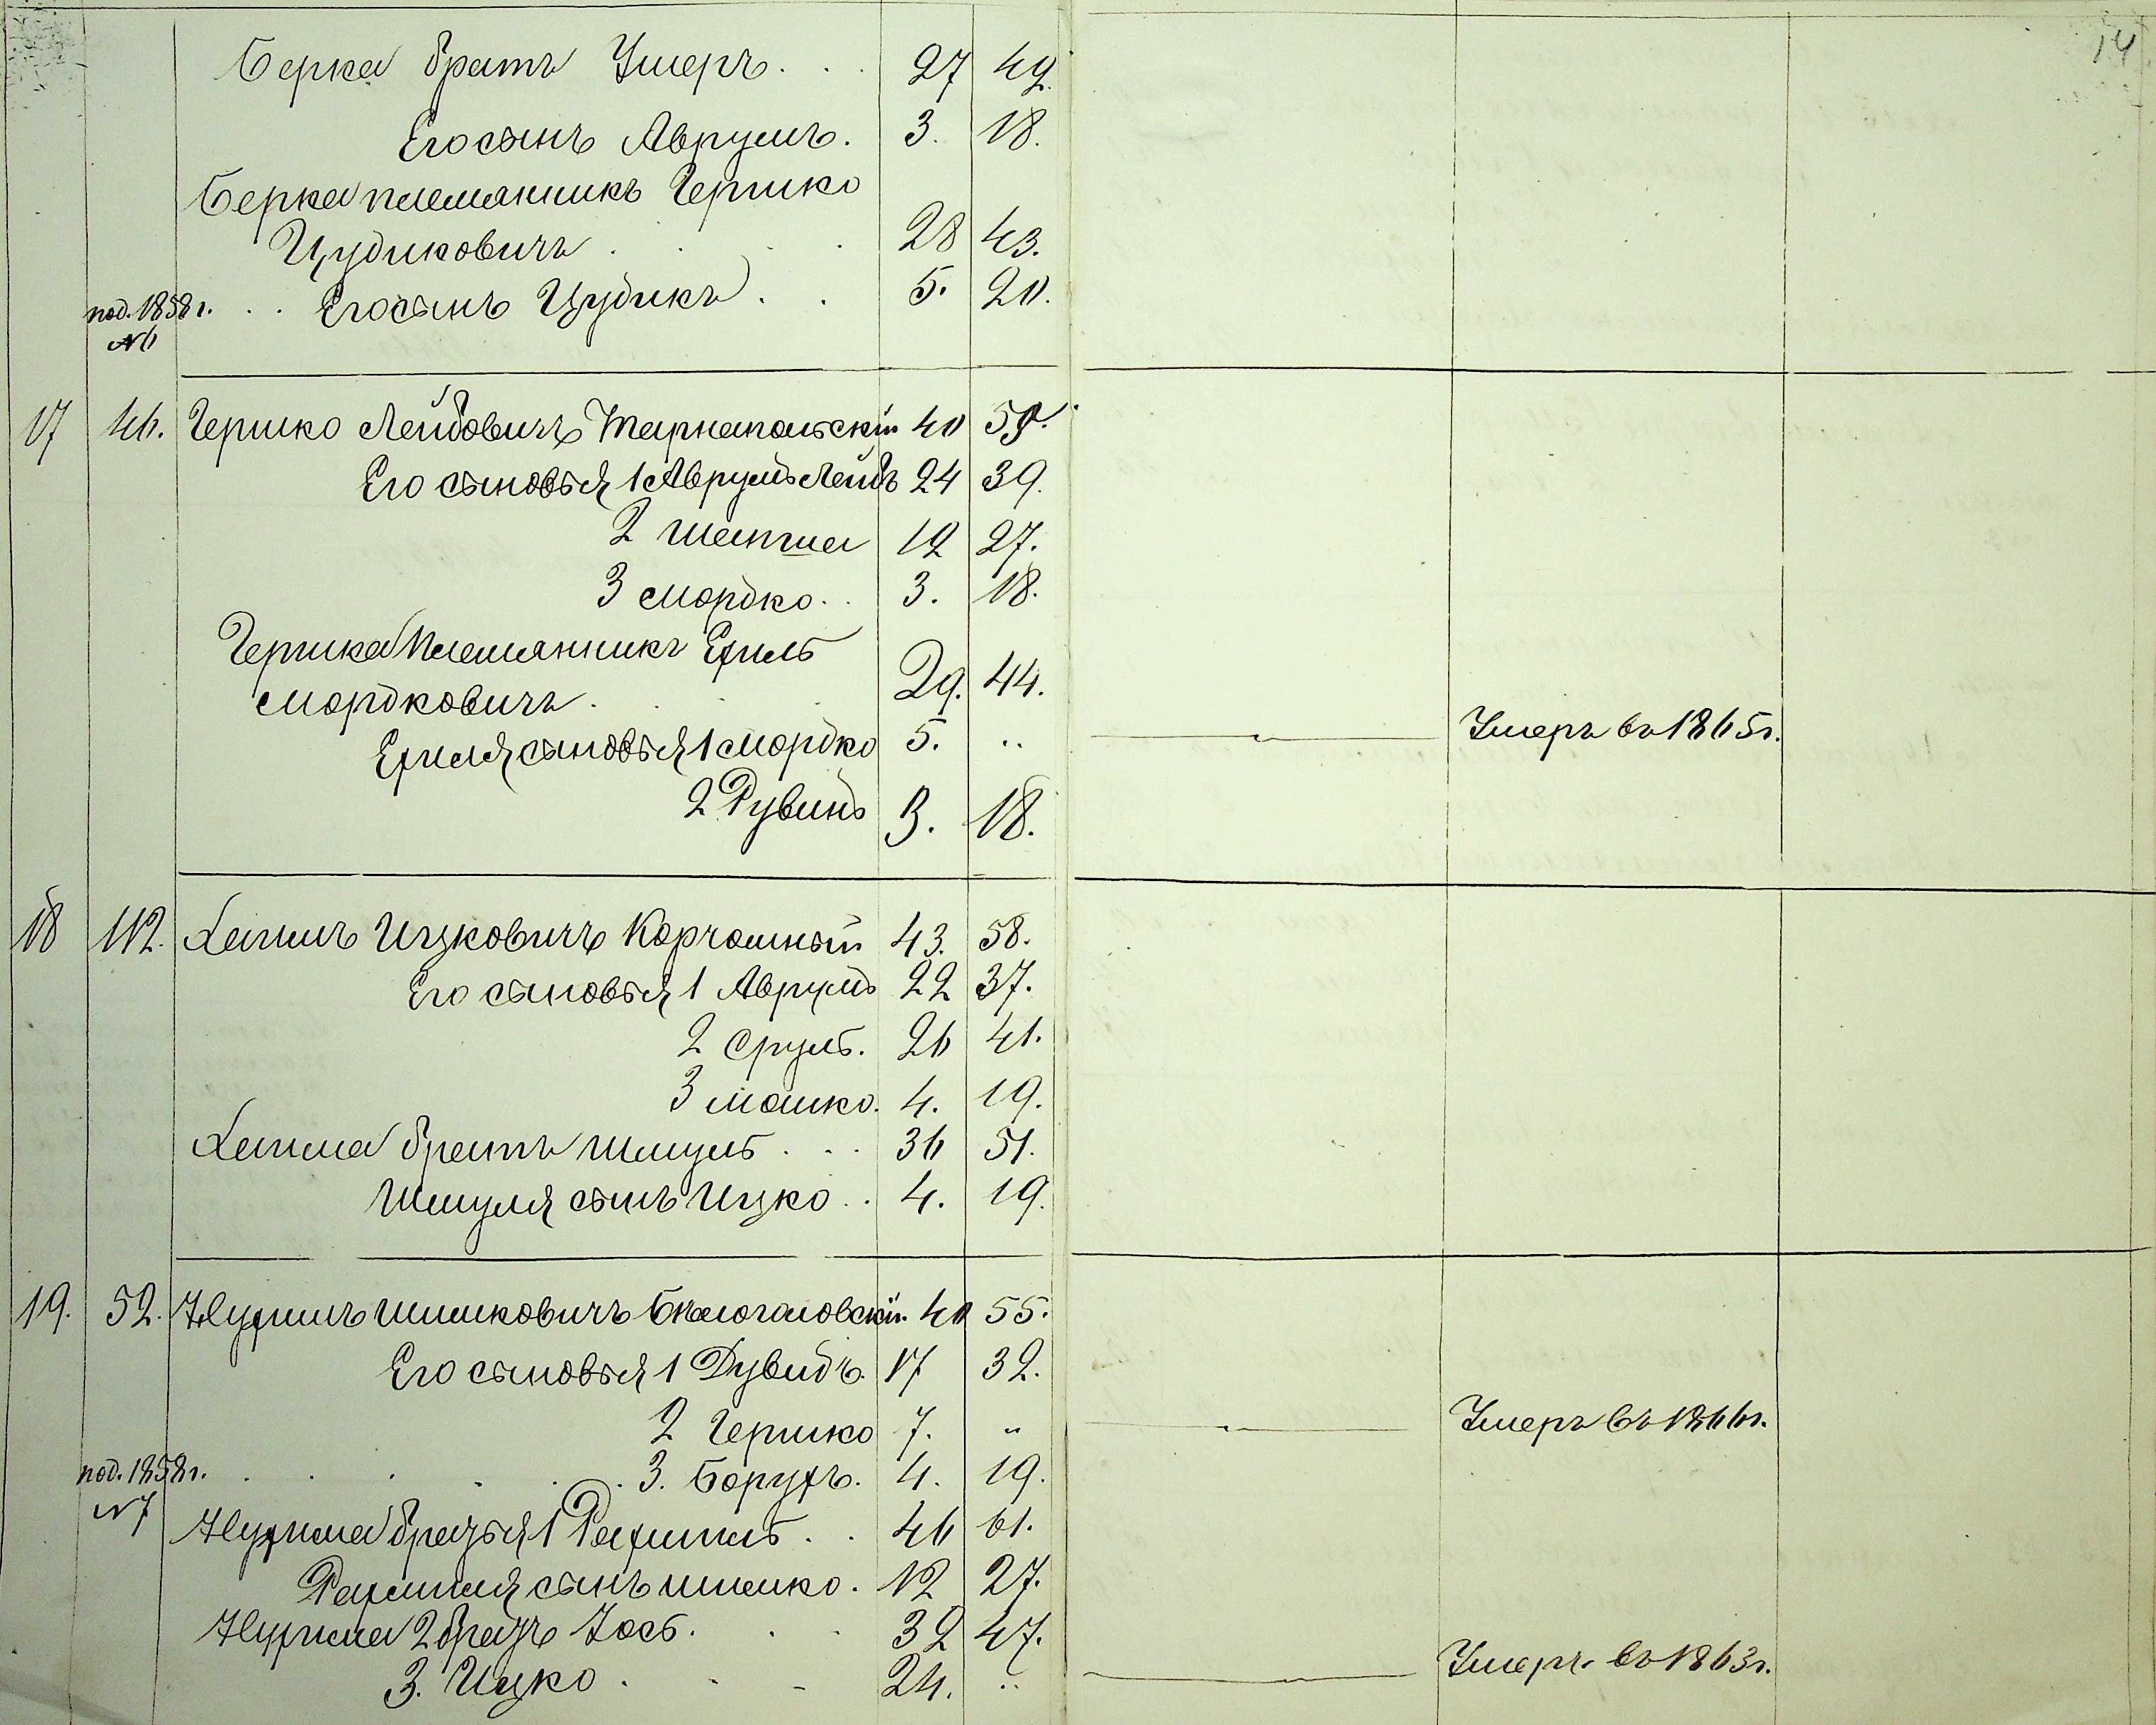 14
Берка братъ Ушеръ . . . 27 42.
Его сынъ Аврумъ. 3. 18.
Берка племянникъ Гершко
Цудиковичъ . . . 28 43.
под. 1858 г. . . Его сынъ Цудикъ . . 5. 20.
№6
17 46. Гершко Лейбовичъ Тарнапольскій 40 55.
Его сыновья 1 Аврумъ Лейбъ 24 39.
2 Шапша 12 27.
3 Мордко . . 3. 18.
Гершка племянникъ Ехиль
Мордковичъ . . . 29. 44.
Ехиля сыновья 1 Мордко 5. .. Умеръ въ 1865 г.
2 Рувинъ 3. 18.
18 112. Хаимъ Ицковичъ Корчомный 43. 58.
Его сыновья 1 Аврумъ 22 37.
2 Сруль. 26 41.
3 Мошко. 4. 19.
Хаима братъ Шмуль . . . 36 51.
Шмуля сынъ Ицко . . 4. 19.
19. 52. Нухимъ Шимковичъ Бѣлоголовскій. 40 55.
Его сыновья 1 Дувидъ. 17 32.
2 Гершко 7. .. Умеръ въ 1866 г.
под. 1858 г. . . . . . . 3. Борухъ. 4. 19.
№7
Нухима братья 1 Рахмиль . . 46 61.
Рахмиля сынъ Шимко. 12 27.
Нухима 2 братъ Іось. . . 32 47.
3. Ицко . . - 24. .. Умеръ въ 1863 г.